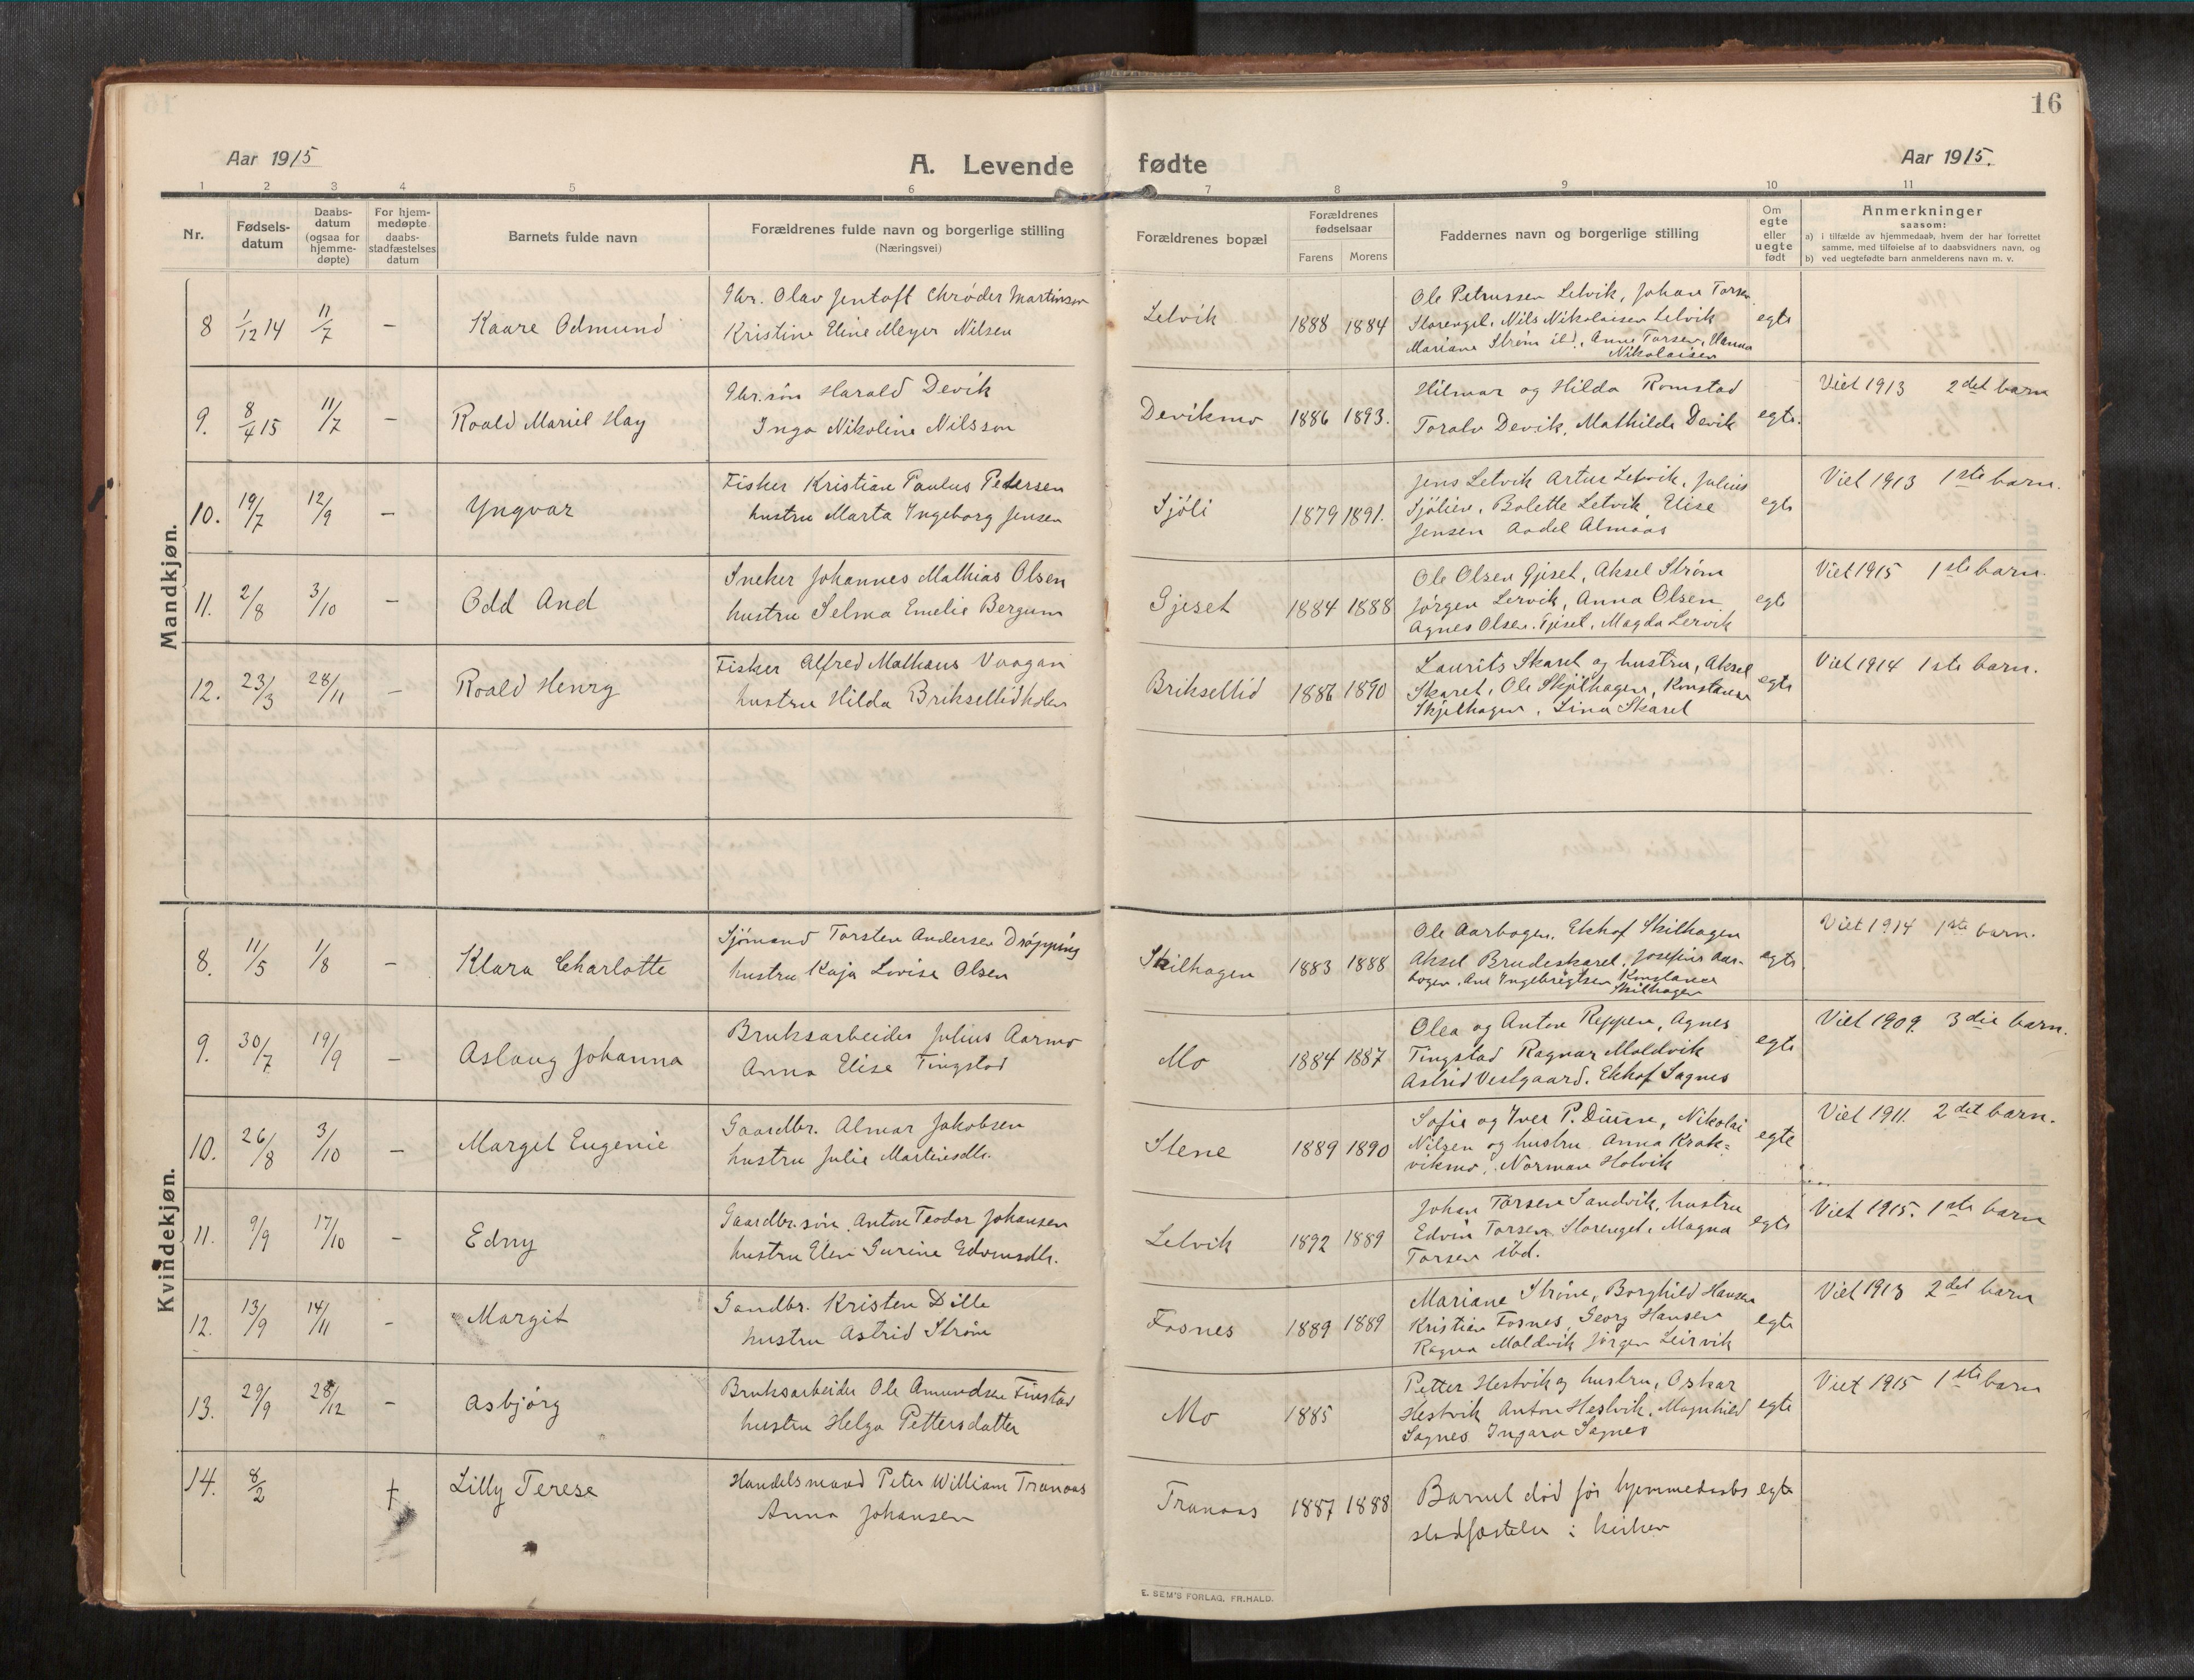 16
Aar 1915
A. Levende fødte
Aar 1915.
1 2 3 4 5 6 7 8 9 10 11
Nr.
Fødsels-
datum
Daabs-
datum
(ogsaa for
hjemme-
døpte)
For hjem-
medøpte
daabs-
stadfæstelses
datum
Barnets fulde navn
Forældrenes fulde navn og borgerlige stilling
(Næringsvei)
Forældrenes bopæl
Forældrenes
fødselsaar
Farens Morens
Faddernes navn og borgerlige stilling
Om
egte
eller
uegte
født
Anmerkninger
saasom:
a) i tilfælde av hjemmedaab, hvem der har forrettet
samme, med tilføielse af to daabsvidners navn, og
b) ved uegtefødte barn anmelderens navn m. v.
Mandkjøn.
8 1/12 14 11/7 – Kaare Odmund
Gbr. Olav Jentoft Chrøder Martinsen
Kristine Eline Meyer Nilsen
Letvik 1888 1884
Ole Petrussen Letvik, Johan Torsen
Storengel, Nils Nikolaisen Letvik
Mariane Strøm ibd., Anne Torsen, Hanna
Nikolaisen
egte
9. 8/4 15 11/7 – Roald Mariel Hay
Gbr.søn Harald Devik
Inga Nikoline Nilsson
Devikmo 1886 1893.
Hilmar og Hilda Romstad
Toralv Devik, Mathilde Devik
egte.
Viet 1913 2det barn
10. 19/7 12/9 – Yngvar
Fisker Kristian Paulus Petersen
hustru Marta Ingeborg Jensen
Sjöli 1879 1891.
Jens Letvik Artur Letvik, Julius
Sjölien, Bolette Letvik, Elise
Jensen Aadel Almaas
egte
Viet 1913 1ste barn.
11. 2/8 3/10 – Odd And
Sneker Johannes Mathias Olsen
hustru Selma Emelie Bergum
Gjeset 1884 1888
Ole Olsen Gjeset, Aksel Strøm
Jørgen Lervik, Anna Olsen
Agnes Olsen. Gjeset, Magda Lervik
egte
Viet 1915 1ste barn.
12. 23/3 28/11 – Roald Henry
Fisker Alfred Mathæus Vaagan
hustru Hilda Briksellidholm
Briksellid 1886 1890
Laurits Skaret og hustru, Aksel
Skaret, Ole Skjelhagen, Konstanse
Skjelhagen, Lina Skaret
egte
Viet 1914 1ste barn.
Kvindekjøn.
8. 11/5 1/8 – Klara Charlotte
Sjømand Torsten Andersen Drøpping
hustru Kaja Lovise Olsen
Skilhagen 1883 1888
Ole Aarbogen. Ekhof Skilhagen
Aksel Brudeskaret. Josefine Aar-
bogen. Ane Ingebrigtsen Konstance
Skilhagen
egte
Viet 1914 1ste barn.
9. 30/7 19/9 – Aslaug Johanna
Bruksarbeider Julius Aarmo
Anna Elise Tingstad
Mo 1884 1887
Olea og Anton Reppen, Agnes
Tingstad Ragnar Moldvik
Astrid Vestgaard. Ekhof Sagnes
egte
Viet 1909. 3die barn.
10. 26/8 3/10 – Margit Eugenie
Gaardbr. Almar Jakobsen
hustru Julie Martinsdtr.
Stene 1889 1890
Sofie og Iver P. Duun, Nikolai
Nilsen og hustru Anna Krak-
vikmo, Norman Holvik
egte
Viet 1911. 2det barn.
11. 9/9 17/10 – Edny
Gaardbr.søn. Anton Teodor Johansen
hustru Elen Gurine Edvinsdtr.
Letvik 1892 1889
Johan Torsen Sandvik, hustru
Edvin Torsen Storenget. Magna
Torsen ibd.
egte
Viet 1915. 1ste barn
12. 13/9 14/11 – Margit
Gaardbr. Kristen Dille
hustru Astrid Strøm
Fosnes 1889 1889
Mariane Strøm, Borghild Hansen
Kristian Fosnes, Georg Hansen
Ragna Moldvik Jørgen Leirvik
egte
Viet 1913 2det barn
13. 29/9 28/12 – Asbjørg
Bruksarbeider Ole Amundsen Finstad
hustru Helga Pettersdatter
Mo 1885
Petter Hestvik og hustru, Oskar
Hestvik Anton Hestvik, Magnhild
Sagnes Ingara Sagnes
egte
Viet 1915 1ste barn
14. 8/2 † Lilly Terese
Handelsmand Peter William Tranaas
Anna Johansen
Tranaas 1887 1888
Barnet død før hjemmedaabs
stadfæstelse i kirken
egte
E. SEM'S FORLAG, FR.HALD.